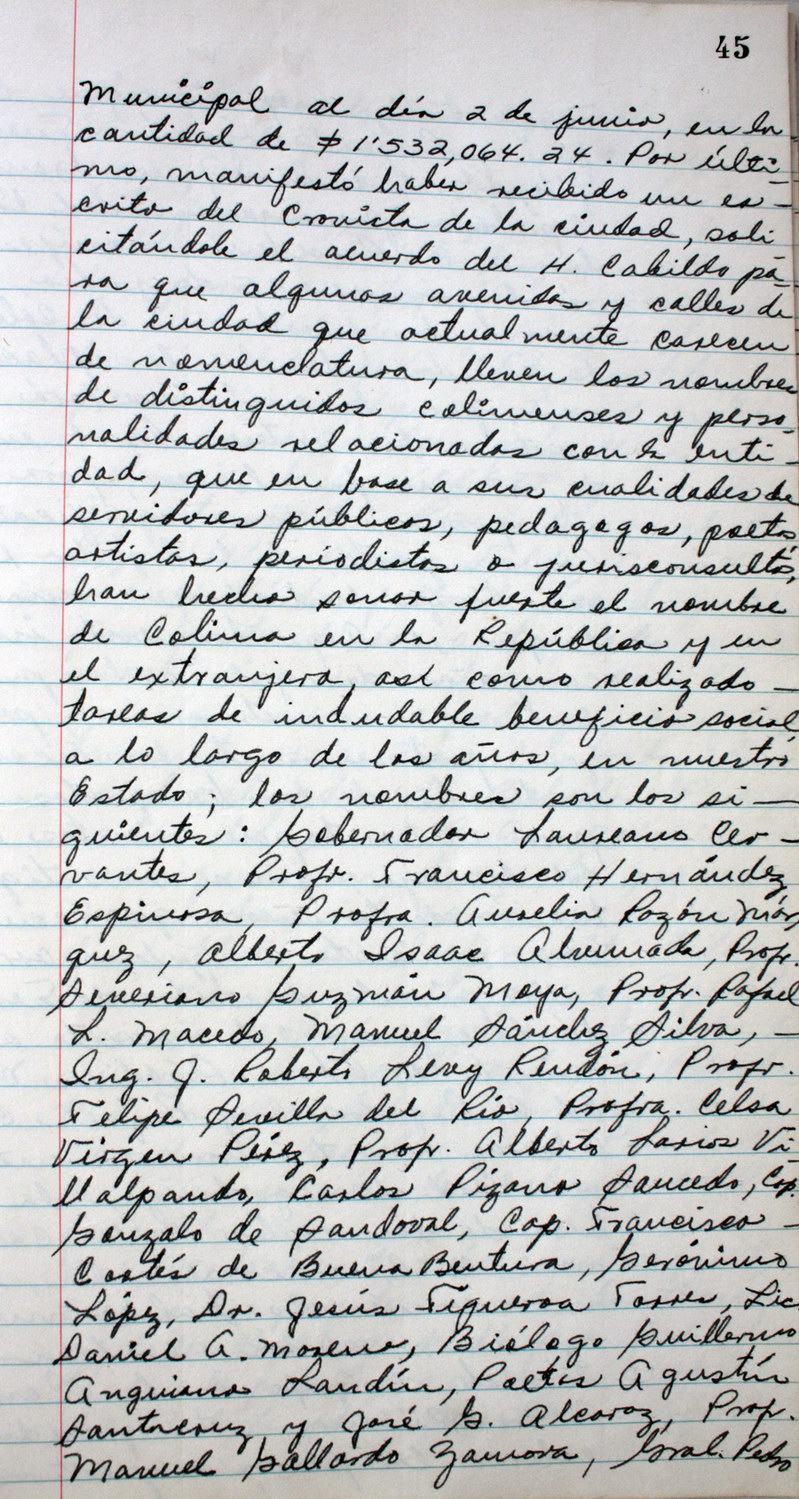 45
Municipal al día 2 de junio, en la
cantidad de $1'532,064.24. Por últi-
mo, manifestó haber recibido un es-
crito del Cronista de la ciudad, soli
citándole el acuerdo del H. Cabildo pa-
ra que algunas avenidas y calles de
la ciudad que actualmente carecen
de nomenclatura, lleven los nombres
de distinguidos colimenses y perso-
nalidades relacionadas con la enti-
dad, que en base a sus cualidades de
servidores públicos, pedagogos, poetas
artistas, periodistas o jurisconsultos,
han hecho sonar fuerte el nombre
de Colima en la República y en
el extranjero, así como realizado -
tareas de indudable beneficio social,
a lo largo de los años, en nuestro
Estado; los nombres son los si-
guientes: Gobernador Laureano Cer-
vantes, Profr. Francisco Hernández
Espinosa, Profra. Aurelia Razón Már-
quez, Alberto Isaac Ahumada, Profr.
Severiano Guzmán Moya, Profr. Rafael
L. Macedo, Manuel Sánchez Silva, -
Ing. J. Roberto Levy Rendón, Profr.
Felipe Sevilla del Río, Profra. Celsa
Virgen Pérez, Profr. Alberto Larios Vi-
llalpando, Carlos Pizano Saucedo, Cap.
Gonzalo de Sandoval, Cap. Francisco -
Cortés de Buena Bentura, Gerónimo
López, Dr. Jesús Figueroa Torres, Lic
Daniel A. Moreno, Biólogo Guillermo
Anguiano Landín, Poetas Agustín
Santacruz y José G. Alcaraz, Prof.
Manuel Gallardo Zamora, Gral. Pedro